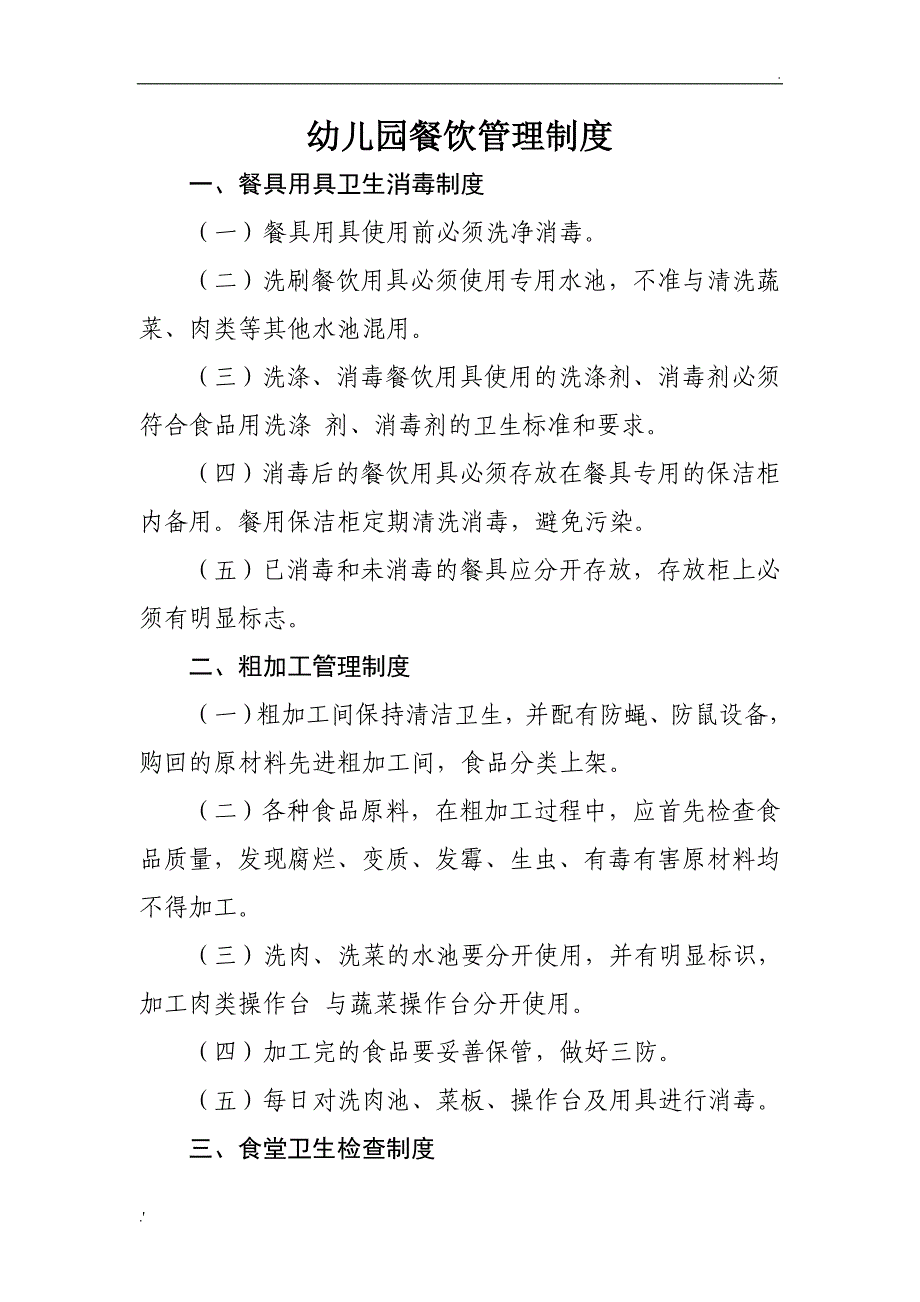 .
幼儿园餐饮管理制度
一、餐具用具卫生消毒制度
（一）餐具用具使用前必须洗净消毒。
（二）洗刷餐饮用具必须使用专用水池，不准与清洗蔬
菜、肉类等其他水池混用。
（三）洗涤、消毒餐饮用具使用的洗涤剂、消毒剂必须
符合食品用洗涤 剂、消毒剂的卫生标准和要求。
（四）消毒后的餐饮用具必须存放在餐具专用的保洁柜
内备用。餐用保洁柜定期清洗消毒，避免污染。
（五）已消毒和未消毒的餐具应分开存放，存放柜上必
须有明显标志。
二、粗加工管理制度
（一）粗加工间保持清洁卫生，并配有防蝇、防鼠设备，
购回的原材料先进粗加工间，食品分类上架。
（二）各种食品原料，在粗加工过程中，应首先检查食
品质量，发现腐烂、变质、发霉、生虫、有毒有害原材料均
不得加工。
（三）洗肉、洗菜的水池要分开使用，并有明显标识，
加工肉类操作台 与蔬菜操作台分开使用。
（四）加工完的食品要妥善保管，做好三防。
（五）每日对洗肉池、菜板、操作台及用具进行消毒。
三、食堂卫生检查制度
.'